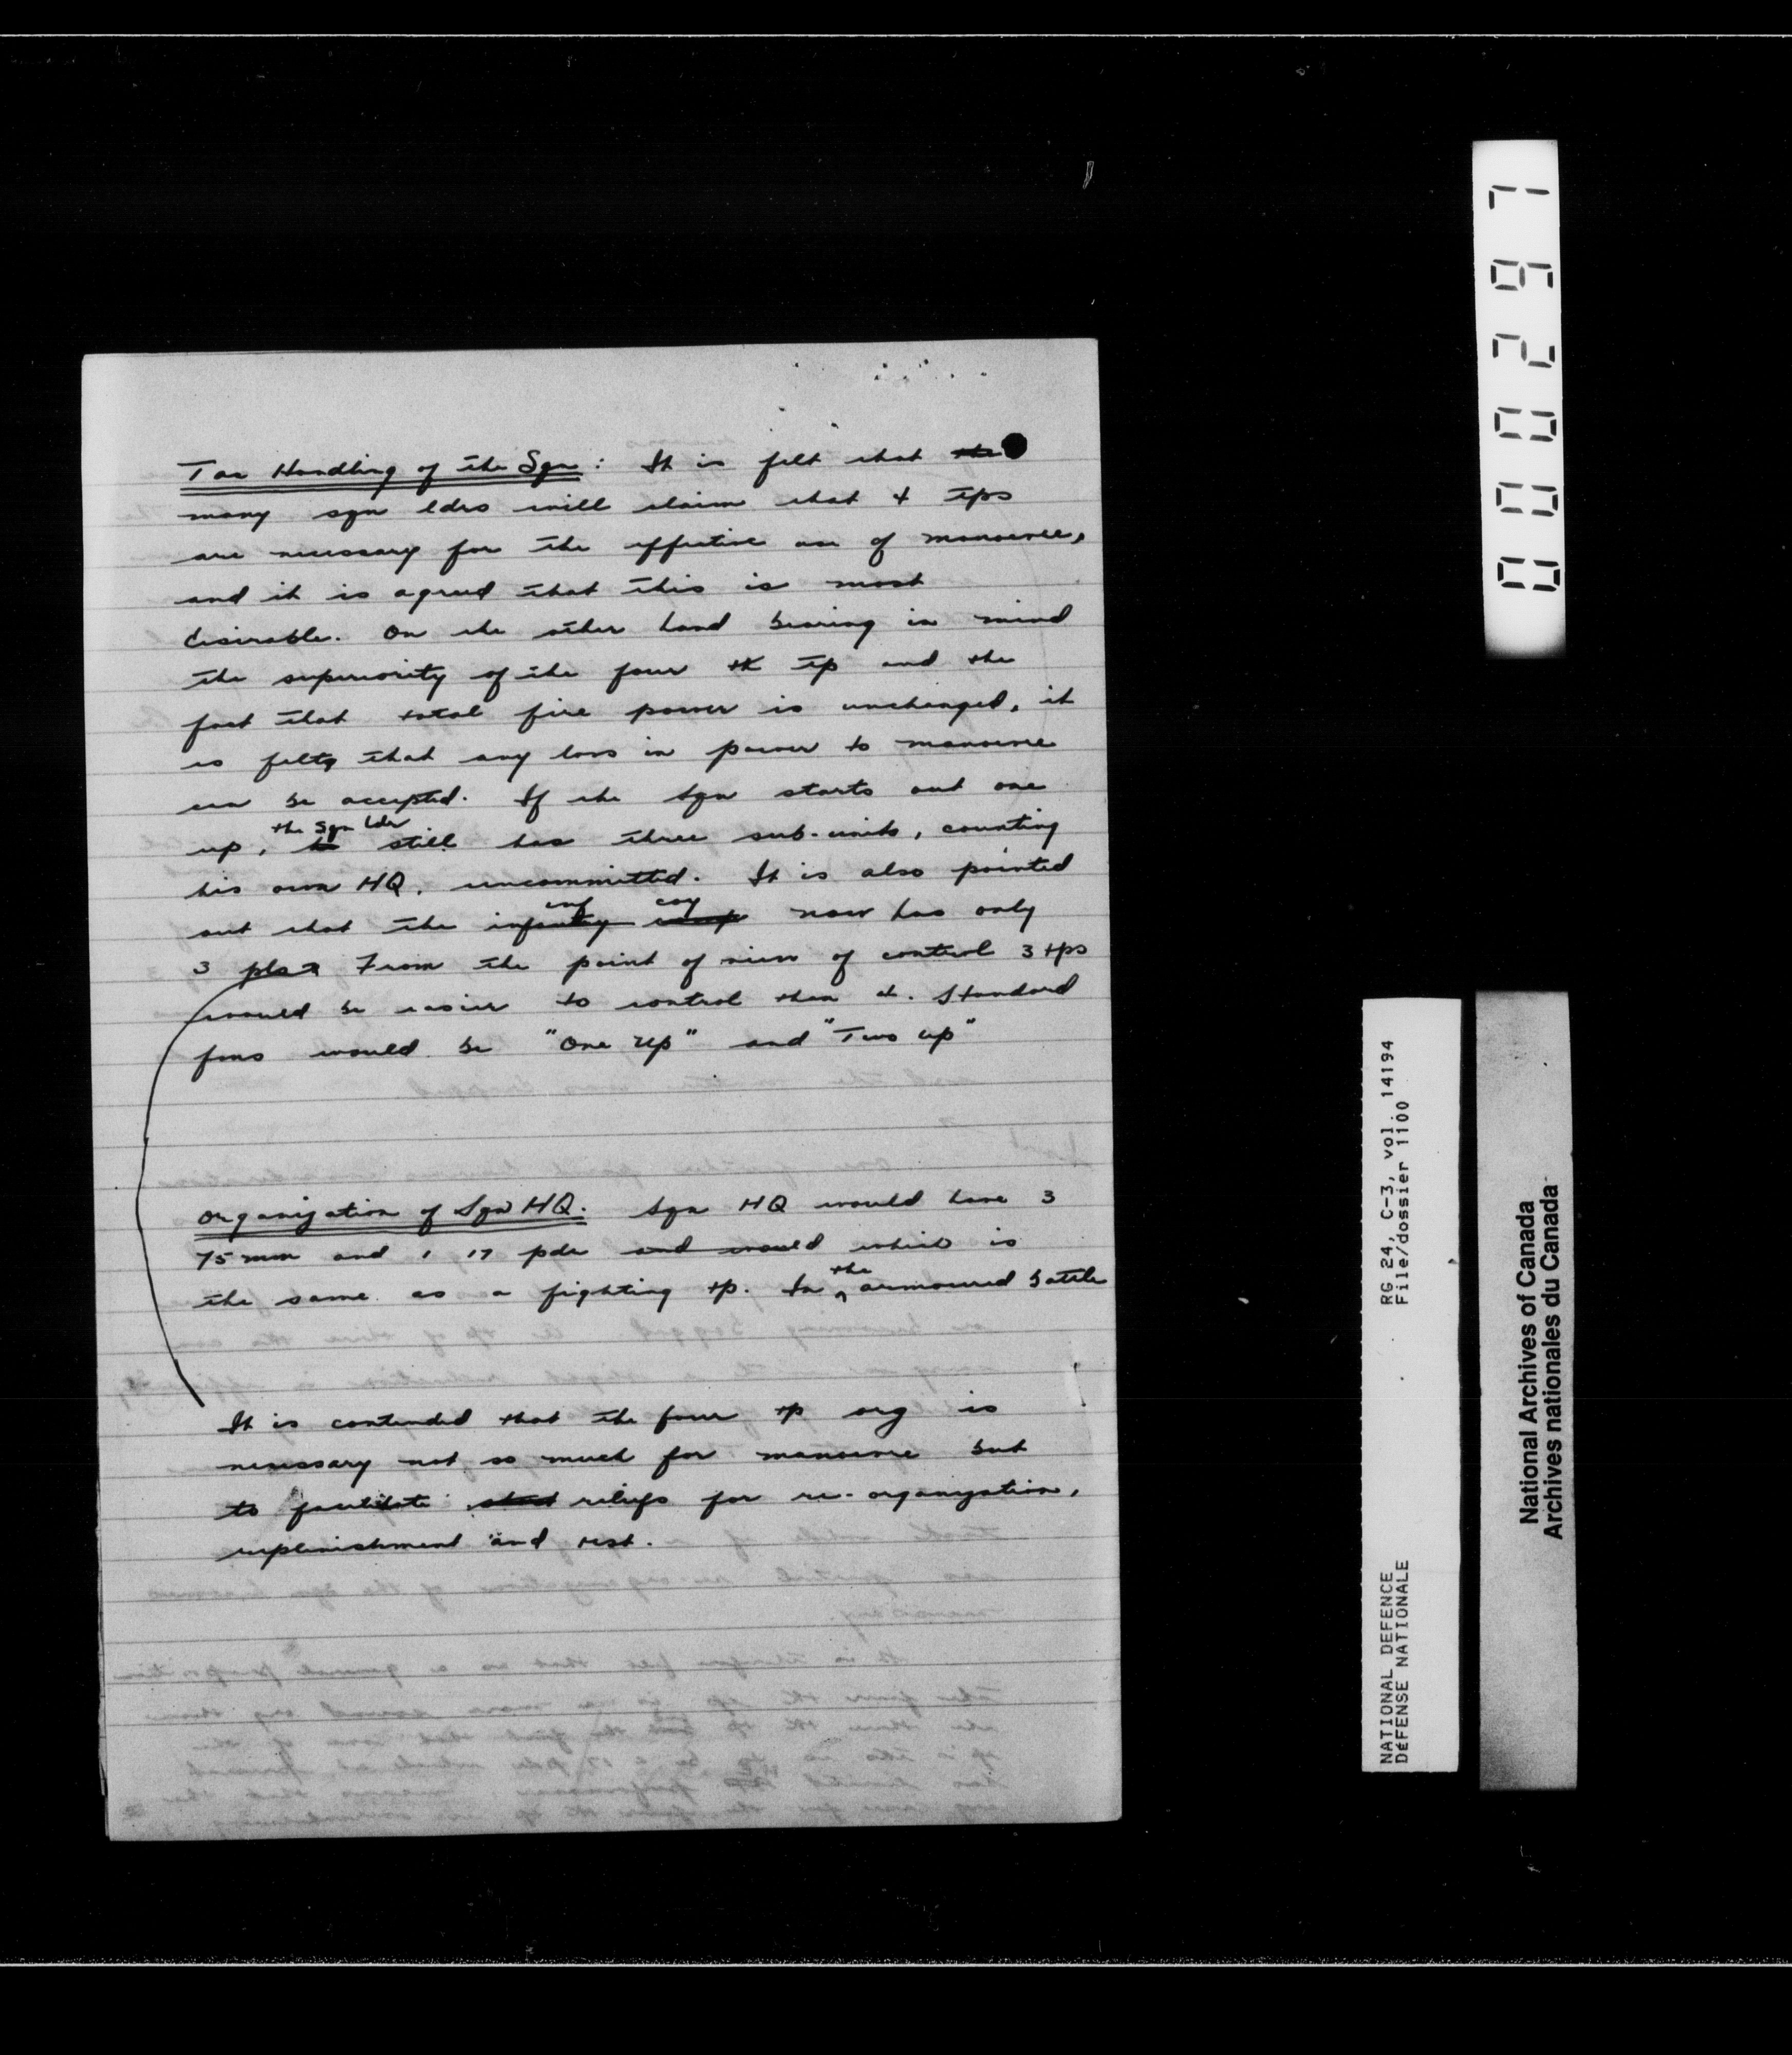 Tac Handling of the Sqn: It is felt that the
many sqn ldrs will claim that 4 tps
are necessary for the effective use of manoeuvre,
and it is agreed that this is most
desirable. On the other hand bearing in mind
the superiority of the four tk tp and the
fact that total fire power is unchanged, it
is felt that any loss in power to manoeuvre
can be accepted. If the sqn starts out one
the Sqn ldr
up, he still has three sub-units, counting
his own HQ, uncommitted. It is also pointed
inf coy
out that the infantry comp now has only
3 pls. From the point of view of control 3 tps
would be easier to control than 4. Standard
fmns would be "One Up" and "Two up"
Organization of Sqn HQ. Sqn HQ would have 3
75 mm and 1 17 pdr and would which is
the
the same as a fighting tp. In armoured battle
It is contended that the four tp org is
necessary not so much for manoeuvre but
to facilitate reliefs for re-organization,
replenishment and rest.
0000297
RG 24, C-3, vol. 14194
File/dossier 1100
NATIONAL DEFENCE
DÉFENSE NATIONALE
National Archives of Canada
Archives nationales du Canada